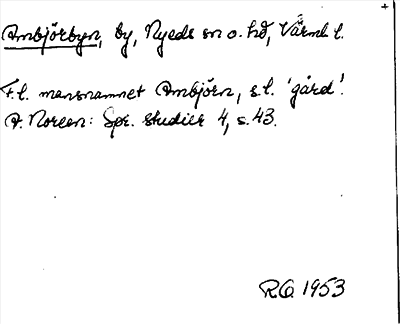 Ambjörbyn, by, Nyeds sn o. hd, Värml l.
F.l. mansnamnet Ambjörn, s.l. 'gård'.
A. Noreen: Spr. studier 4, s. 43.
R.O. 1953